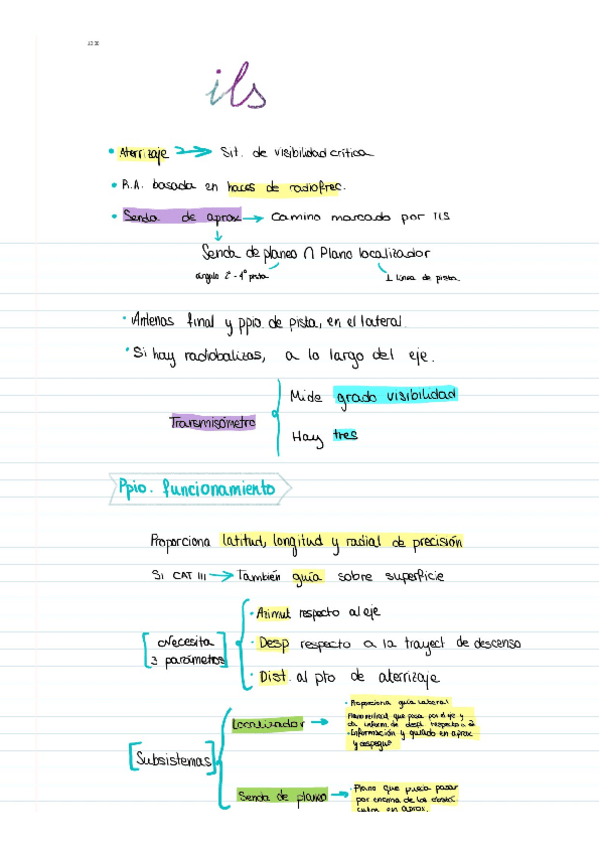 ils
• Aterrizaje → Sit. de visibilidad crítica
• R.A. basada en haces de radiofrec.
• Senda de aprox → Camino marcado por ILS
↓
Senda de planeo ∩ Plano localizador
ángulo 2°-4° pista ⊥ Línea de pista.
• Antenas final y ppio. de pista, en el lateral.
• Si hay radiobalizas, a lo largo del eje.
Transmisómetro
Mide grado visibilidad
Hay tres
Ppio. funcionamiento
Proporciona latitud, longitud y radial de precisión
Si CAT III → También guía sobre superficie
Necesita
3 parámetros
• Azimut respecto al eje
• Desp respecto a la trayect de descenso
• Dist. al pto de aterrizaje
Subsistemas
Localizador →
• Proporciona guía lateral
Plano vertical que pasa por el eje y
da inform. de despl respecto a
• Información y guiado en aprox
y despegue
Senda de planeo →
• Plano que pueda pasar
por encima de los
en aprox.